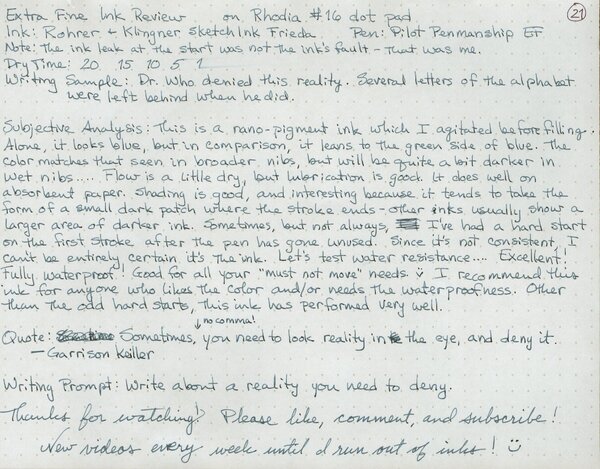 Extra Fine Ink Review on Rhodia #16 dot pad 21
Ink: Rohrer + Klingner SketchInk Frieda Pen: Pilot Penmanship EF
Note: The ink leak at the start was not the ink's fault - that was me.
Dry Time: 20 15 10 5 1
Writing Sample: Dr. Who denied this reality. Several letters of the alphabet
were left behind when he did.
Subjective Analysis: This is a nano-pigment ink which I agitated before filling.
Alone, it looks blue, but in comparison, it leans to the green side of blue. The
color matches that seen in broader nibs, but will be quite a bit darker in
wet nibs..... Flow is a little dry, but lubrication is good. It does well on
absorbent paper. Shading is good, and interesting because it tends to take the
form of a small dark patch where the stroke ends - other inks usually show a
larger area of darker ink. Sometimes, but not always, I've had a hard start
on the first stroke after the pen has gone unused. Since it's not consistent, I
can't be entirely certain it's the ink. Let's test water resistance.... Excellent!
Fully waterproof! Good for all your "must not move" needs. I recommend this
ink for anyone who likes the color and/or needs the waterproofness. Other
than the odd hard starts, this ink has performed very well.
no comma!
Quote: Sometimes, you need to look reality in the eye, and deny it.
- Garrison Keiller
Writing Prompt: Write about a reality you need to deny.
Thanks for watching! Please like, comment, and subscribe!
New videos every week until I run out of inks!